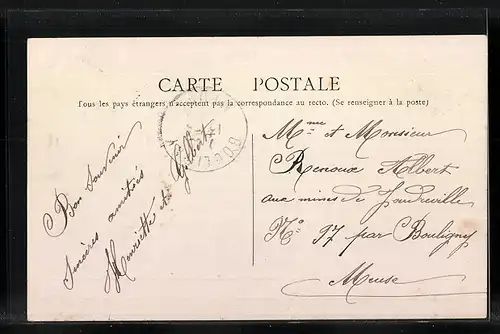 CARTE POSTALE
Tous les pays étrangers n'acceptent pas la correspondance au recto. (Se renseigner à la poste)
Bon Souvenir
Sincères amitiés
Henriette et Gilbert
Mme et Monsieur
Renoux Albert
aux mines de Joudreville
No 97 par Bouligny
Meuse